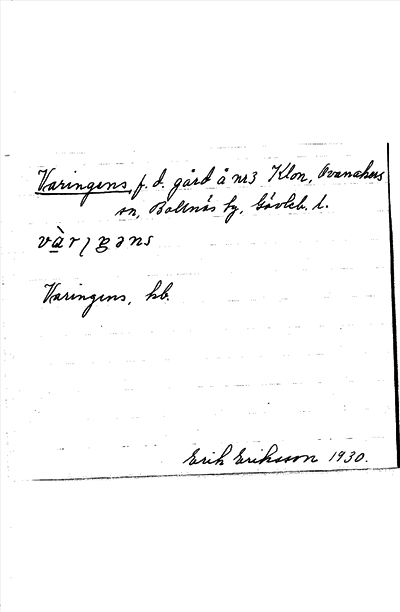 Varingens, f. d. gård å nr 3 Klon, Ovanåkers
sn, Bollnäs tg, Gävleb. l.
Varingens, kb.
Erik Eriksson 1930.